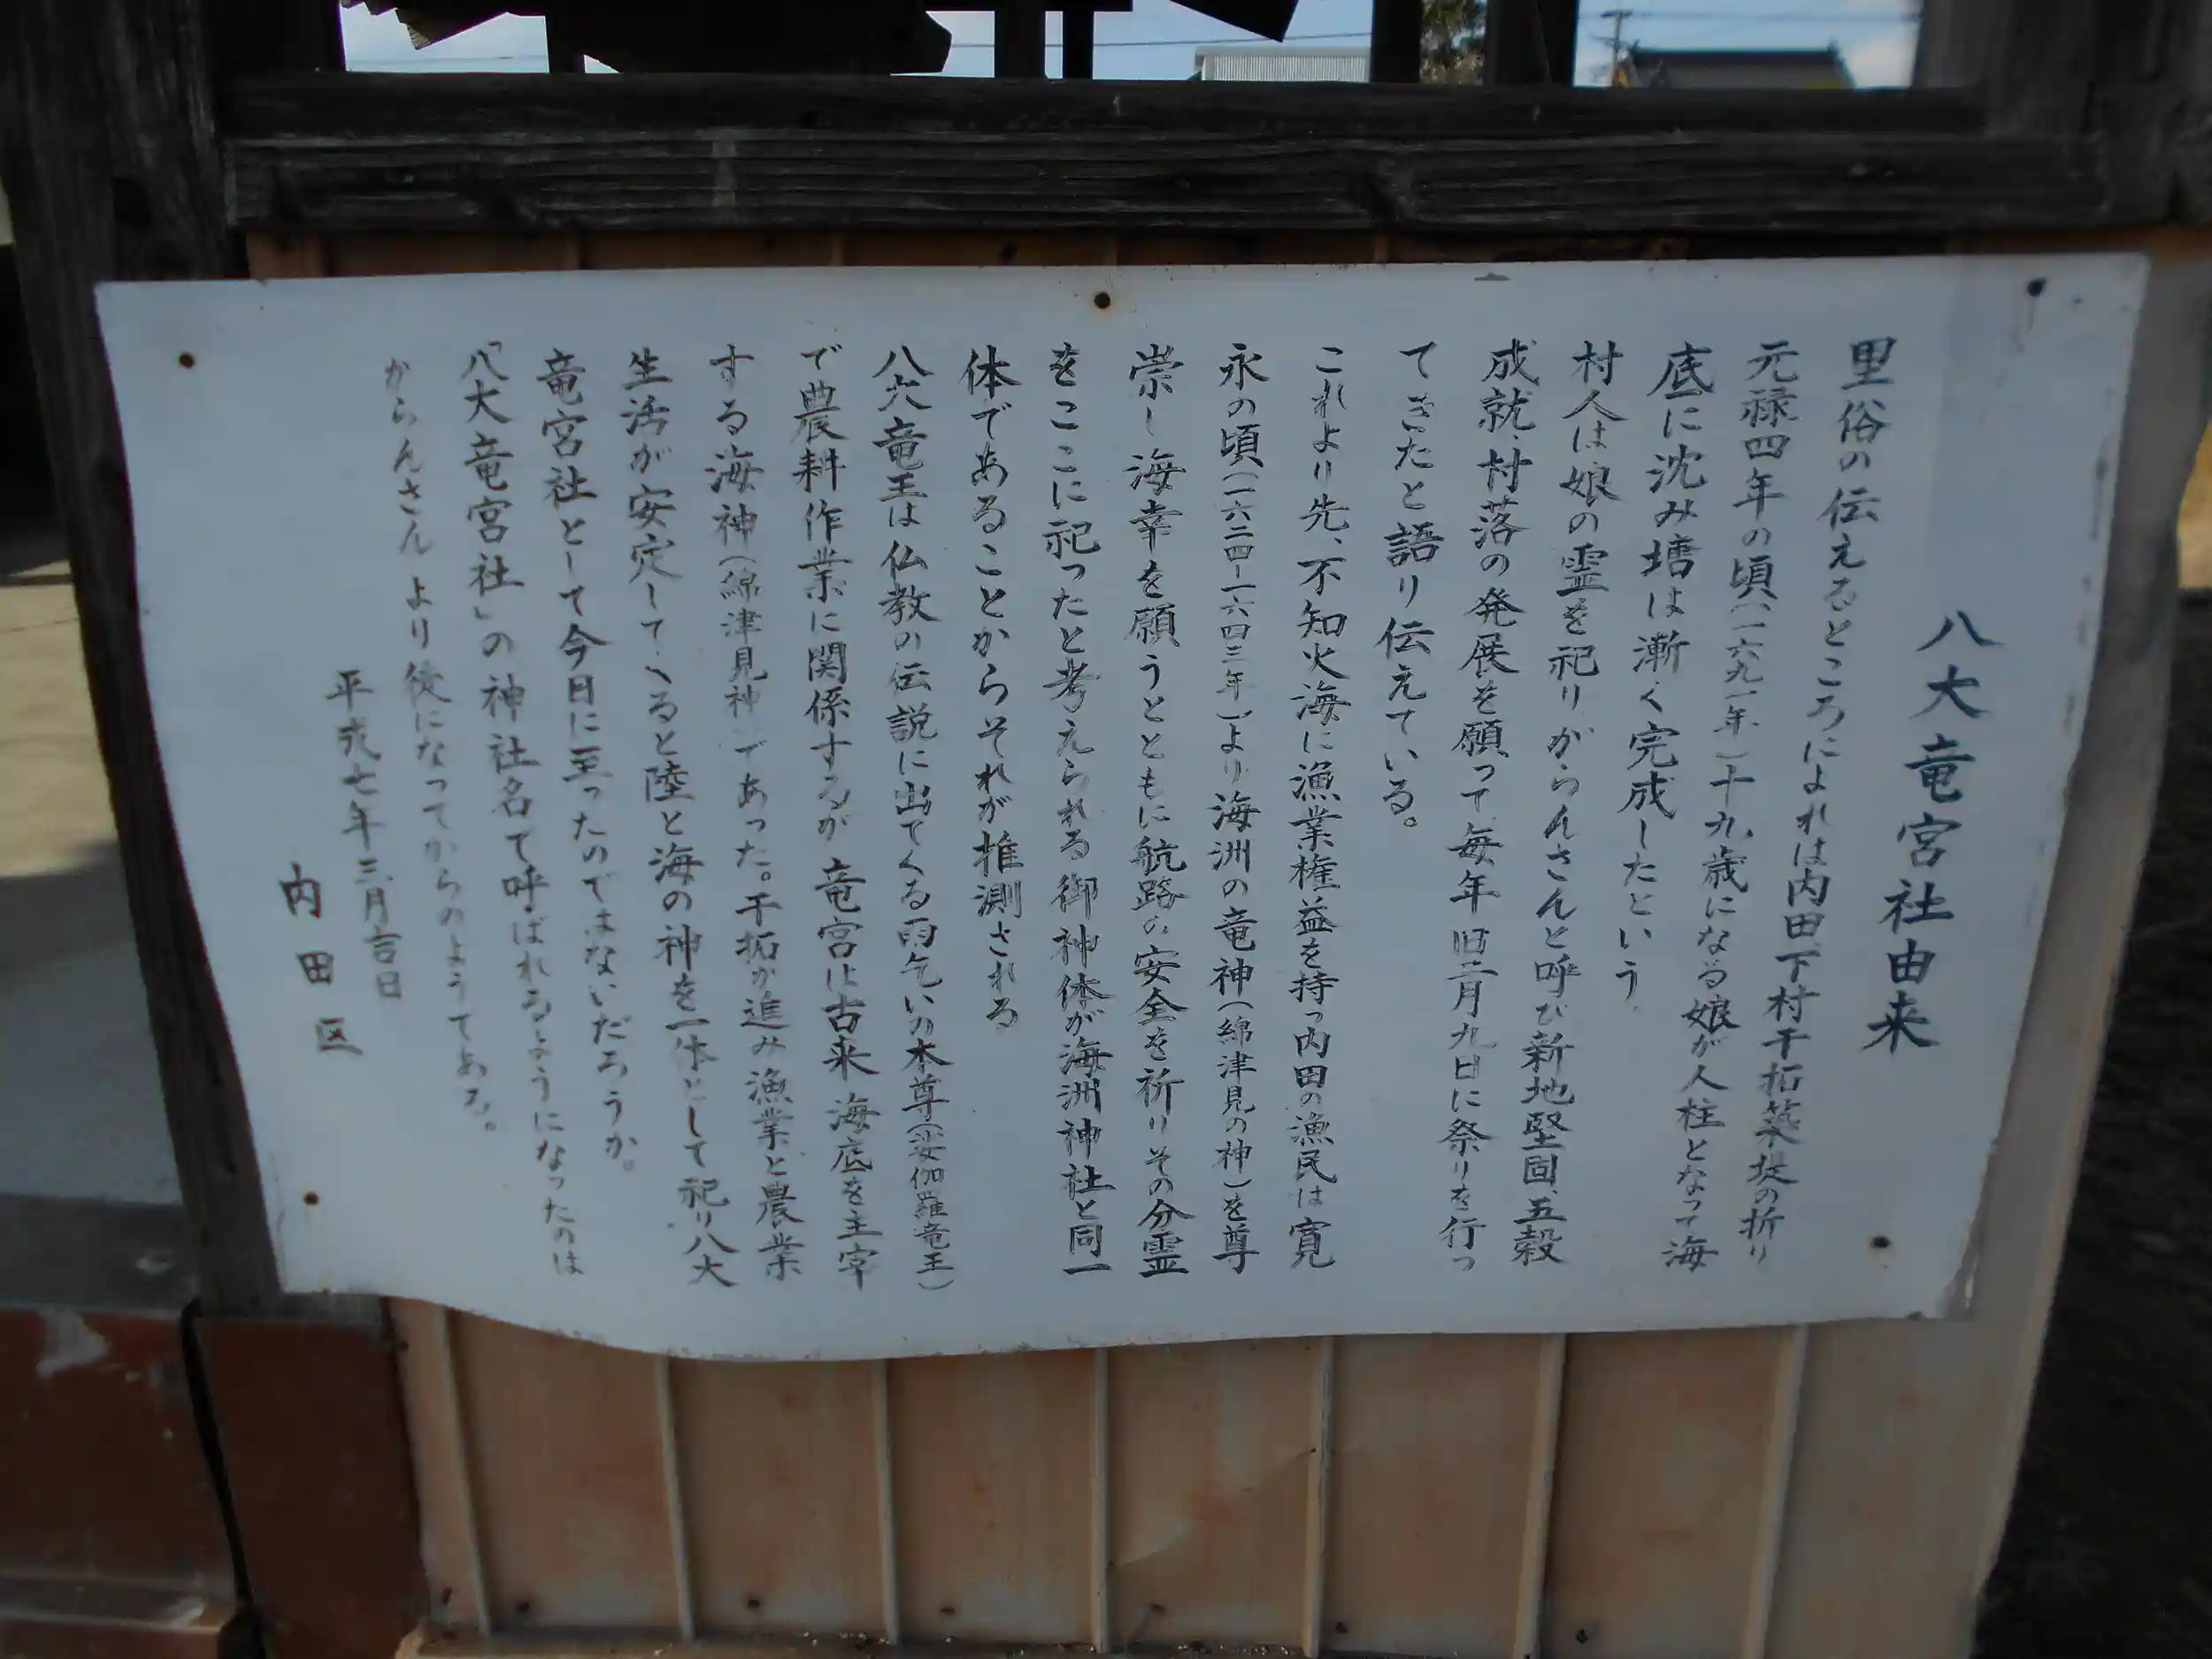 八大竜宮社由来
里俗の伝えるところによれは内田下村干拓築堤の折り
元禄四年の頃(一六九一年)十九歳になる娘が人柱となって海
底に沈み塘は漸く完成したという
村人は娘の霊を祀りがらんさんと呼び新地堅固、五穀
成就、村落の発展を願って毎年旧二月九日に祭りを行っ
てきたと語り伝えている。
これより先、不知火海に漁業権益を持つ内田の漁民は寛
永の頃(一六二四ー一六四三年)より海洲の竜神(綿津見の神)を尊
崇し海幸を願うとともに航路の安全を祈りその分霊
をここに祀ったと考えられる御神体が海洲神社と同一
体であることからそれが推測される
八大竜王は仏教の伝説に出てくる雨乞いの本尊(娑伽羅竜王)
で農耕作業に関係するが 竜宮は古来海底を主宰
する海神(綿津見神)であった。干拓が進み漁業と農業
生活が安定してくると陸と海の神を一体として祀り八大
竜宮社として今日に至ったのでまないだろうか。
「八大竜宮社」の神社名で呼ばれるようになったのは
からんさんより後になってからのようてある。
平成七年三月吉日
内田区